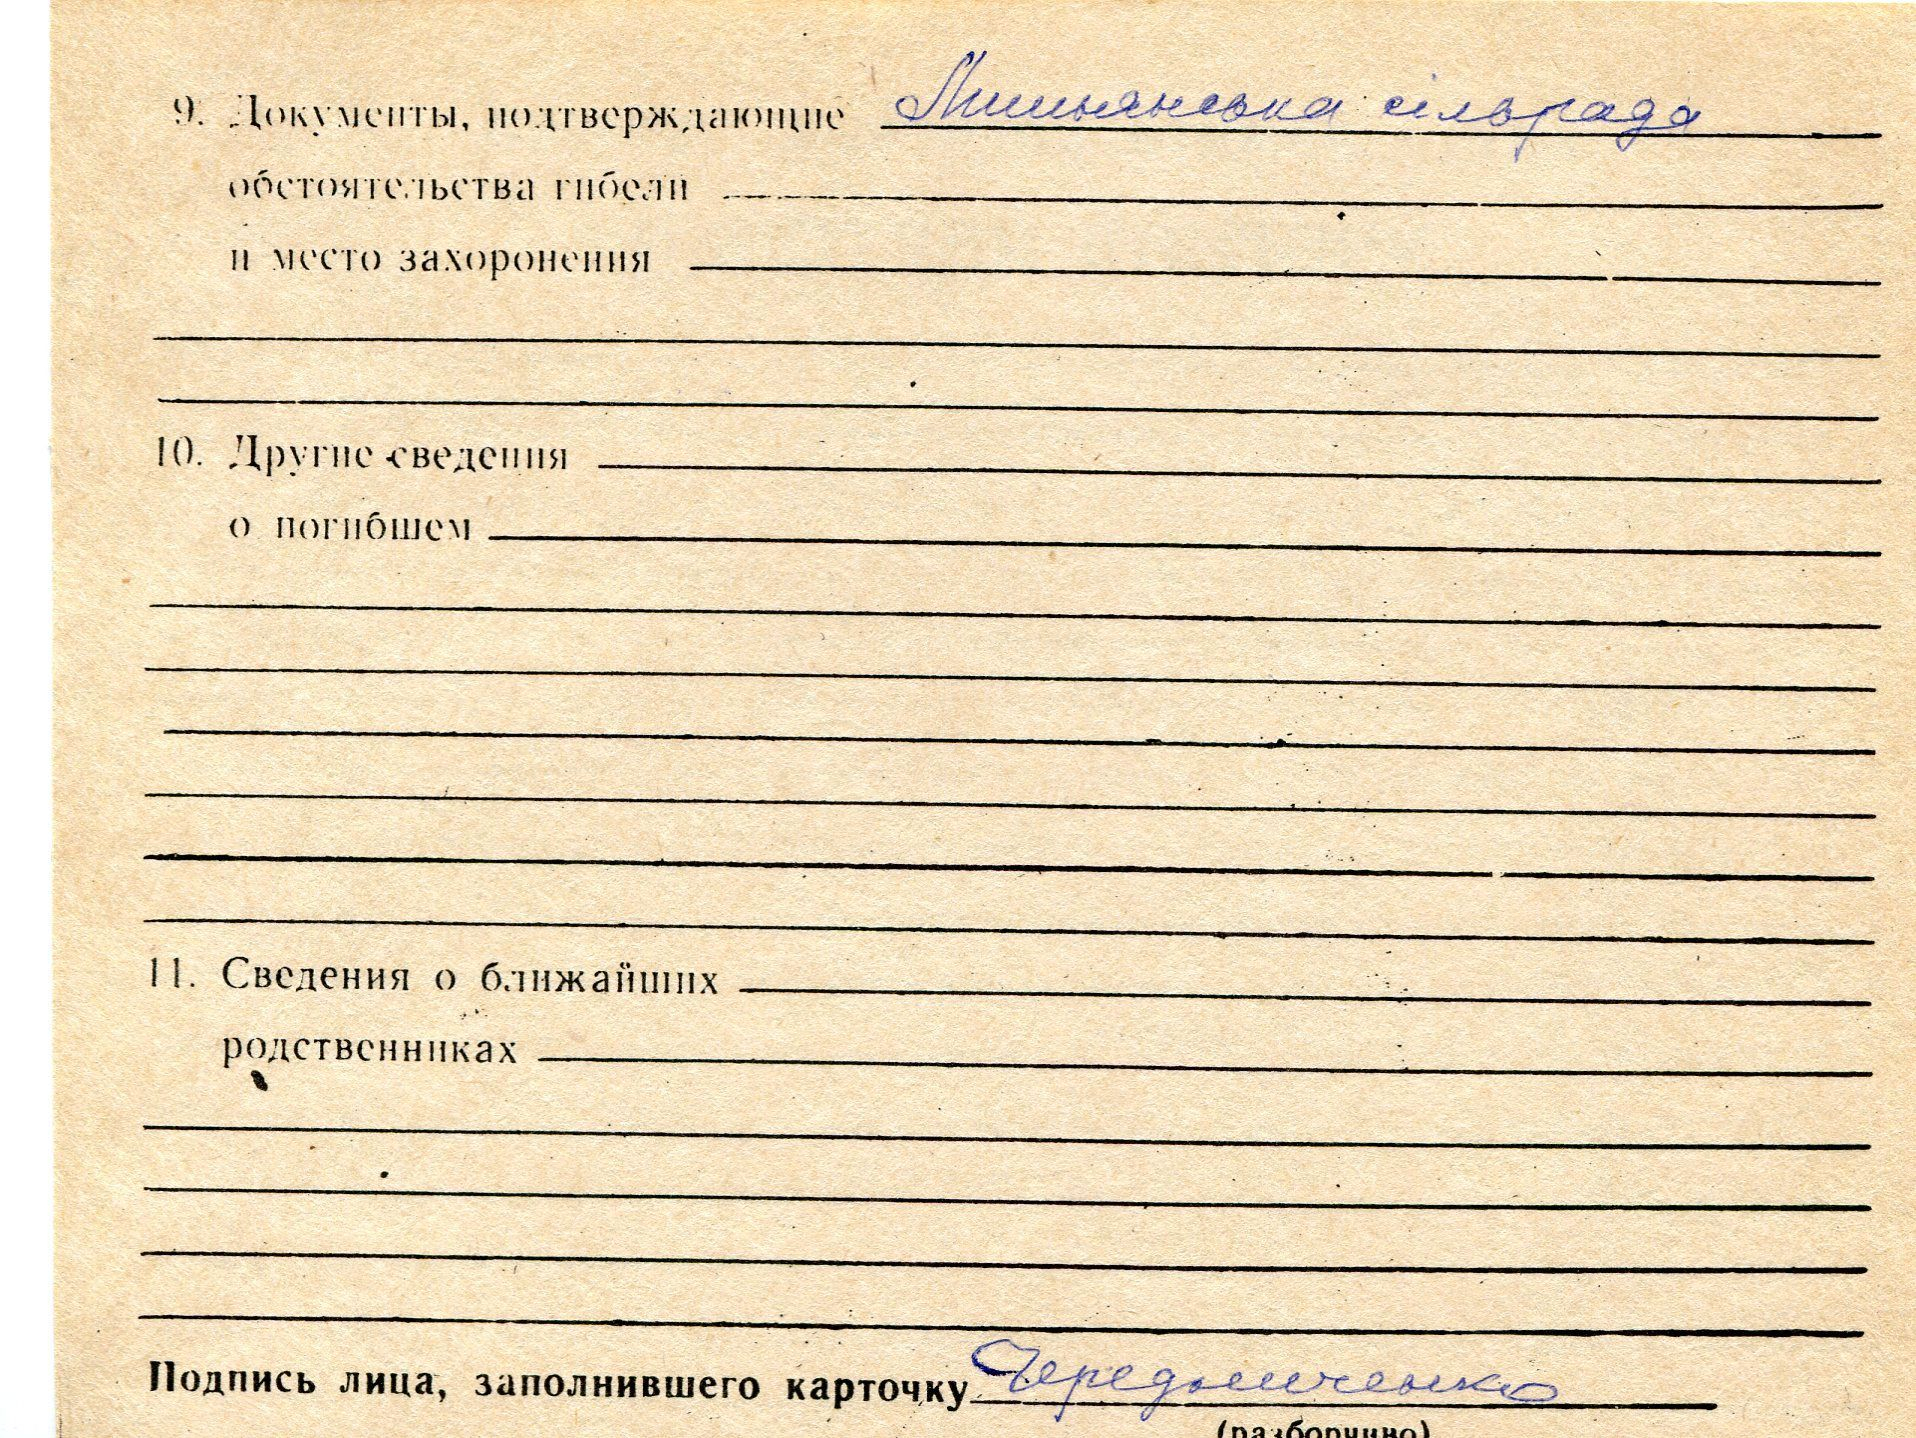 9. Документы, подтверждающие сільрада
обстоятельства гибели
и место захоронения
10. Другие сведения
о погибшем
11. Сведения о ближайших
родственниках
Подпись лица, заполнившего карточку Чередниченко
(разборчиво)